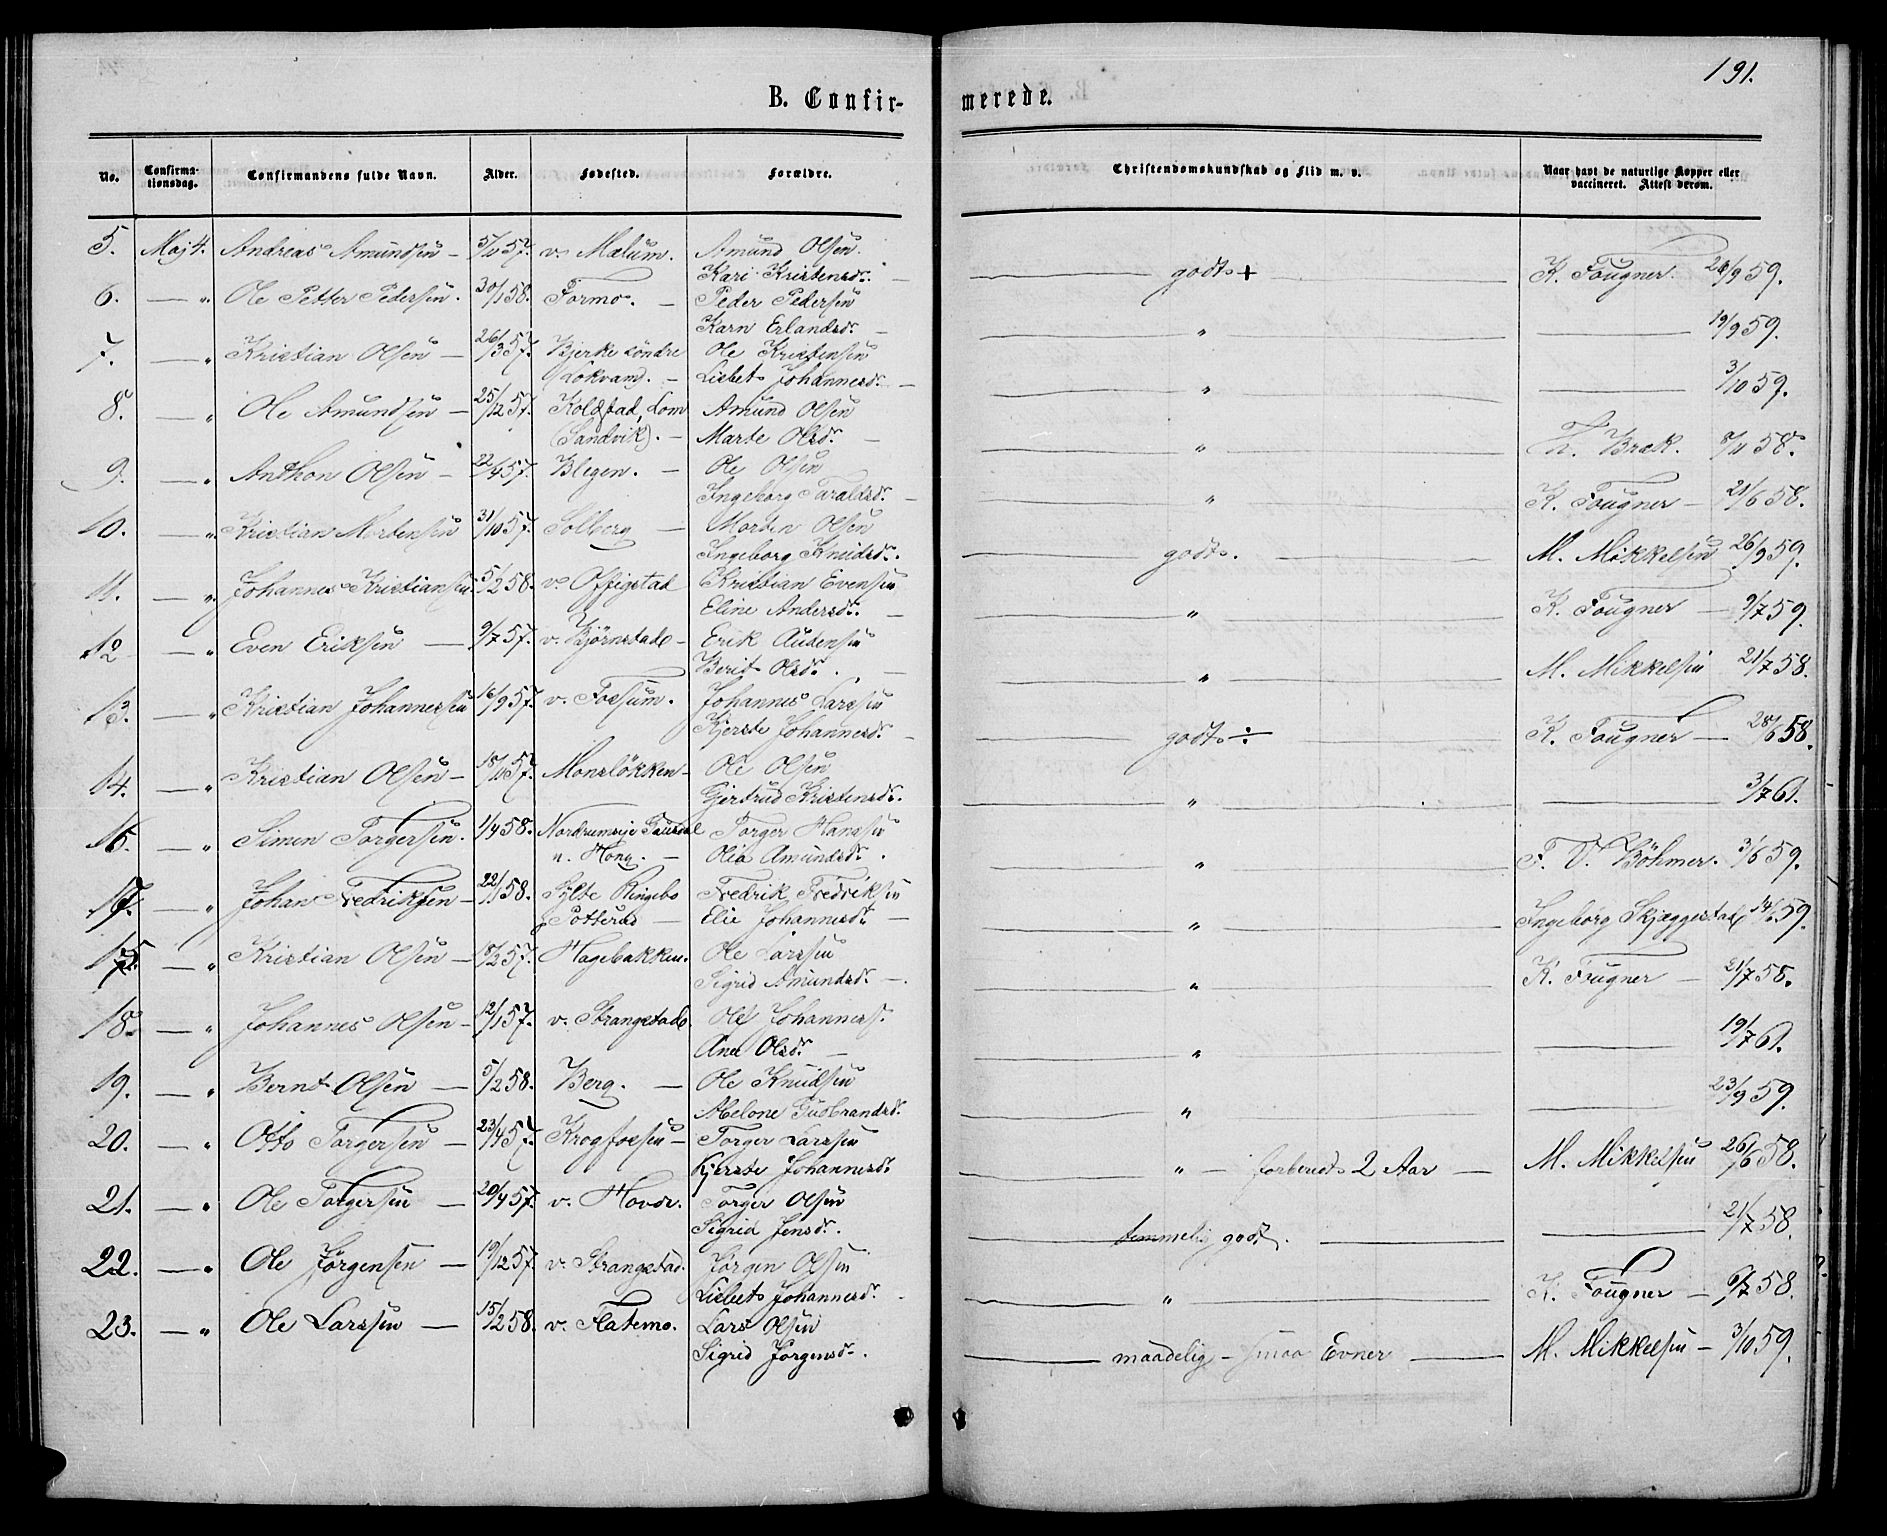 191.
B. Confirmerede.
No. Confirmationsdag. Confirmandens fulde Navn. Alder. Fødested. Forældre. Christendomskundskab og Flid m. v. Naar havt de naturlige Kopper eller vaccineret. Attest derom.
5. Maj 4. Andreas Amundsen - 5/10 57. v. Mælum. Amund Olsen. godt + K. Fougner. 9 59.
Kari Kristensdr.
6. - " Ole Petter Pedersen. 30/1 58. Formo. - Peder Pedersen " 19/9 59.
Karn Erlandsdr. -
7. - " Kristian Olsen - 26/3 57. Bjerke söndre Ole Kristensen " 3/10 59.
(Lokvam). - Lisbet Johannesdr. -
8. - " Ole Amundsen - 25/12 57. Kolgstad, Lom Amund Olsen " Th. Bræk. 8/11 58.
(Sandvik). - Marte Olsdr. -
9. - " Anthon Olsen - 22/4 57. Blegen. - Ole Olsen " K. Fougner - 21/6 58.
Ingeborg Taraldsdr. -
10. - " Kristian Mortensen 31/10 57. Solberg - Morten Olsen godt. M. Mikkelsen 26/9 59.
Ingeborg Knudsdr.
11. - " Johannes Kristiansen 5/2 58. v. Offigstad Kristian Evensen " K. Fougner - 9/7 59.
Eline Andersdr. -
12 - " Even Eriksen - 9/7 57. v. Bjørnstad - Erik Audensen " M. Mikkelsen 21/7 58.
Berit Olsdr. -
13. - " Kristian Johannessen 16/9 57. v. Fossum. Johannes Larssen godt ÷ K. Fougner - 28/6 58.
Kjerste Johannesdr. -
14. - " Kristian Olsen - 18/11 57. Monsløkken - Ole Olsen " 3/7 61.
Gjertrud Kristensdr.
16. - " Simen Torgersen. 1/4 58. Nordrumseje Gausdal Torger Hanssen " F. V. Böhmer. 3/6 59.
u. Hong. - Olia Amundsdr.
17. - " Johan Fredriksen - 22/1 58. Sylte Ringebo Fredrik Fredriksen " Ingeborg Skjæggestad 14/6 59.
Potterud - Elie Johannesdr. -
15. - " Kristian Olsen - 18/2 57. Hagebakken. Ole Larssen " K. Fougner - 21/7 58.
Sigrid Amundsdr. -
18. - " Johannes Olsen - 12/1 57. v. Strangstad. Ole Johanness. " 19/7 61.
Ane Olsdr. -
19. - " Bernt Olsen - 5/2 58. Berg. - Ole Knudsen " 23/9 59.
Abelone Gudbrandsdr.
20. - " Otto Torgersen - 23/4 57. Krogfossen - Torger Larssen " - forberedt 2 Aar - M. Mikkelsen 26/6 58.
Kjerste Johannesdr.
21. - " Ole Torgersen - 20/4 57. v. Hovde. Torger Olsen temmelig godt. 21/7 58.
Sigrid Jensdr.
22. - " Ole Jörgensen - 19/12 57. v. Strangstad. Jörgen Olsen " K. Fougner - 7 58.
Lisbet Johannesdr. -
23. - " Ole Larssen - 15/2 58. v. Flatemo. Lars Olsen maadelig - smaa Evner - M. Mikkelsen - 3/10 59.
Sigrid Jörgensdr.